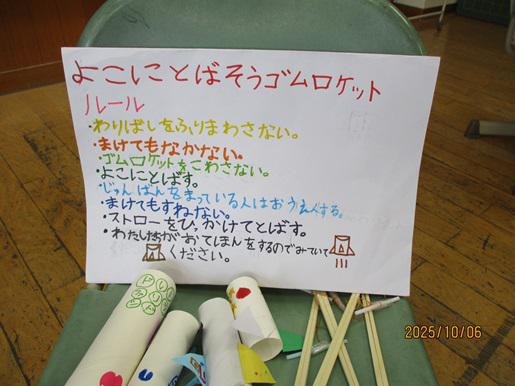 よこにことばそうゴムロケット
ルール
・わりばしをふりまわさない。
・まけてもなかない。
・ゴムロケットをこわさない。
・よこにとばす。
・じゅんばんをまっている人はおうえんする。
・まけてもすねない。
・ストローをひっかけてとばす。
・わたしたちがおてほんをするのでみていて
ください。
2025/10/06